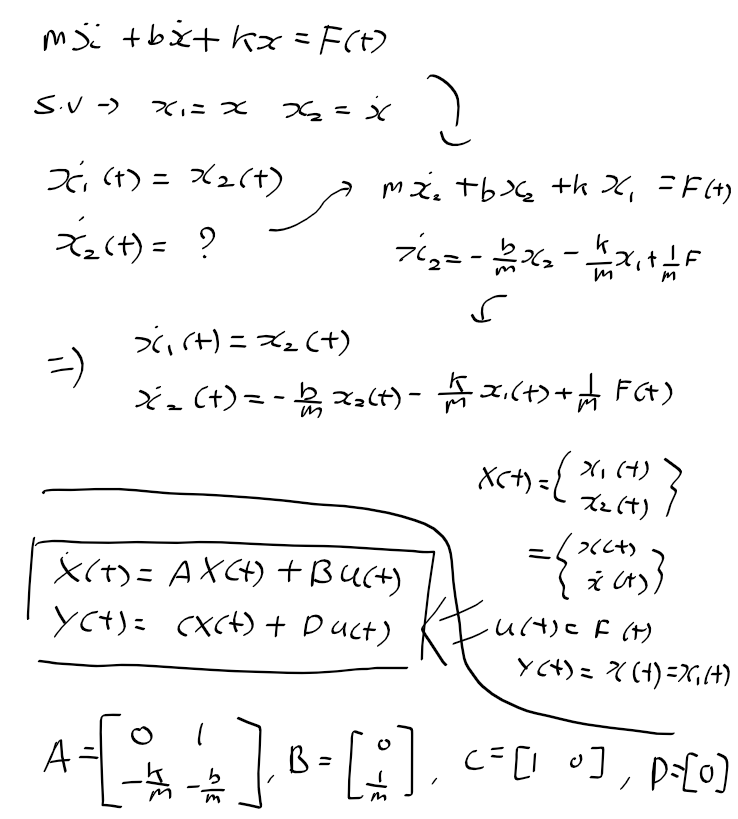 mẍ + bẋ + kx = F(t)
S.V → x₁ = x x₂ = ẋ
ẋ₁(t) = x₂(t)
ẋ₂(t) = ?
mẋ₂ + bx₂ + kx₁ = F(t)
ẋ₂ = -b/m x₂ - k/m x₁ + 1/m F
⇒ ẋ₁(t) = x₂(t)
ẋ₂(t) = -b/m x₂(t) - k/m x₁(t) + 1/m F(t)
X(t) = { x₁(t)
x₂(t) }
= { x(t)
ẋ(t) }
Ẋ(t) = AX(t) + Bu(t)
Y(t) = CX(t) + Du(t)
u(t) = F(t)
Y(t) = x(t) = x₁(t)
A = [0 1; -k/m -b/m], B = [0; 1/m], C = [1 0], D = [0]